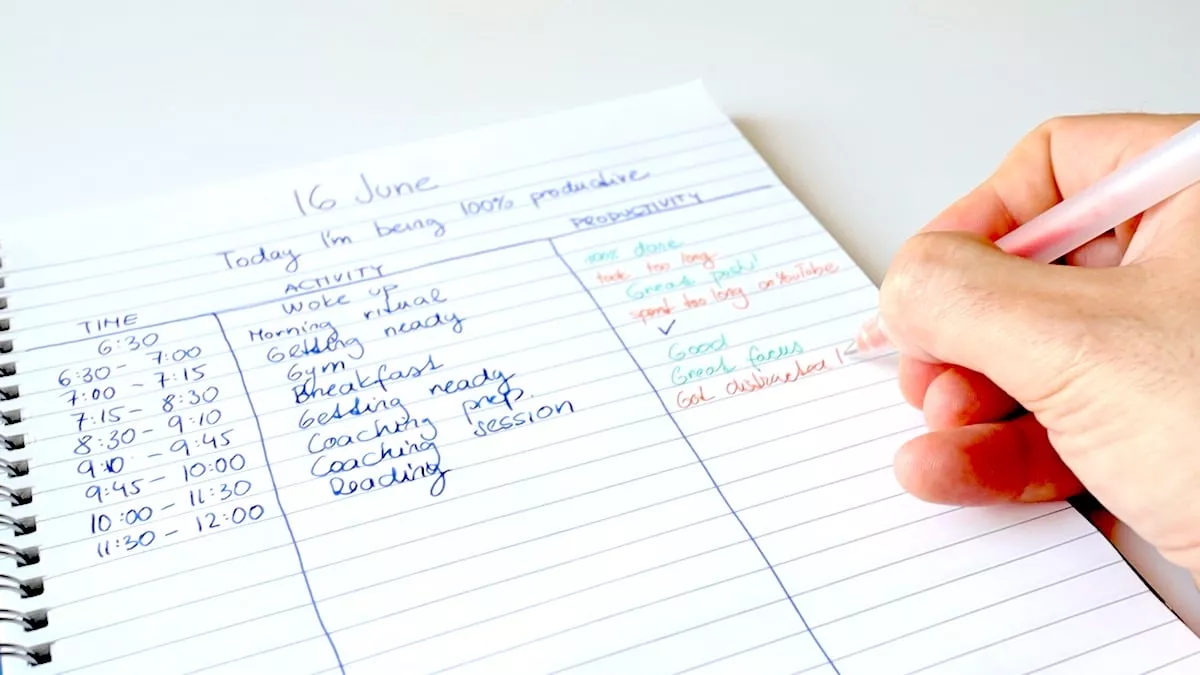 16 June
Today I'm being 100% productive
TIME ACTIVITY PRODUCTIVITY
6:30 Woke up done
6:30 - 7:00 Morning ritual took too long
7:00 - 7:15 Getting ready Great
7:15 - 8:30 Gym spent too long on YouTube
8:30 - 9:10 Breakfast ✓
9:10 - 9:45 Getting ready Good
9:45 - 10:00 Coaching prep. Great focus
10:00 - 11:30 Coaching session Got distracted
11:30 - 12:00 Reading